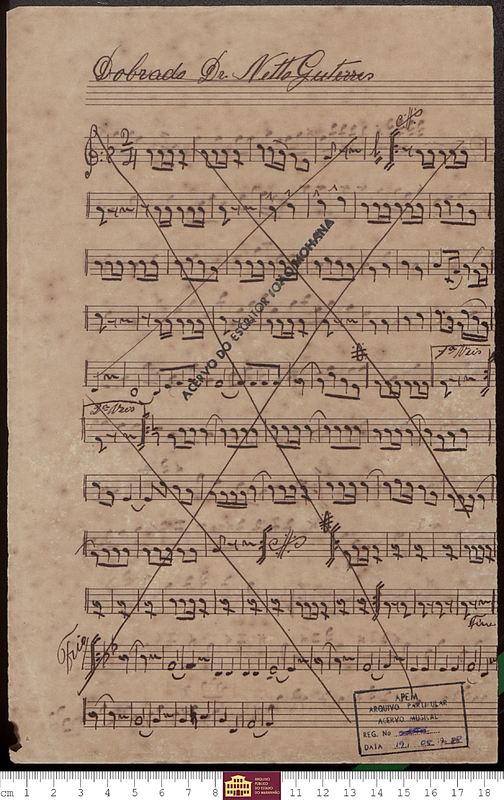 Dobrado Dr. Netto Guterres
2/4
ACERVO DO ESCRITOR JOÃO MOHANA
1ª Vez
2ª Vez
Fim
Trio
APEM
ARQUIVO PARTICULAR
ACERVO MUSICAL
REG. No
DATA
ARQUIVO
PÚBLICO
DO ESTADO
DO MARANHÃO
cm 1 2 3 4 5 6 7 8 9 10 11 12 13 14 15 16 17 18